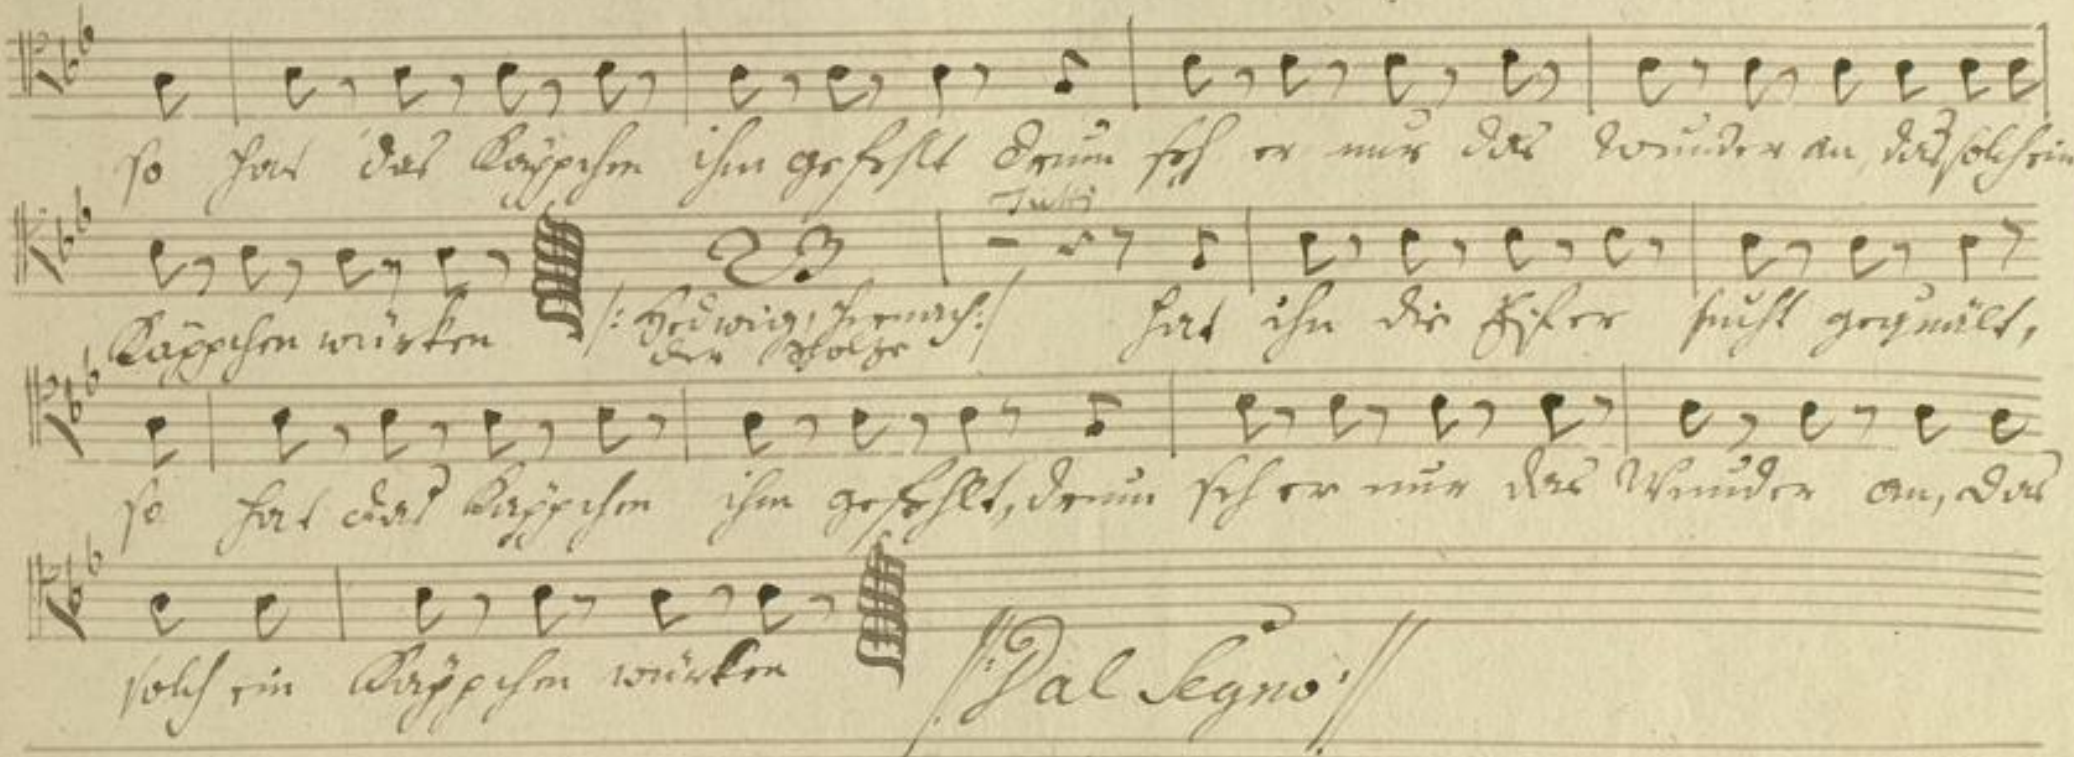 so hat das Käppchen ihm gefehlt drum seh er nur das Wunder an, das solch ein
Tutti
23
Käppchen würken /: Hedwig, hernach :/ hat ihn die Eifersucht gequält,
der
so hat das Käppchen ihm gefehlt, drum seh er nur das Wunder an, das
solch ein Käppchen würken /: Dal Segno :/